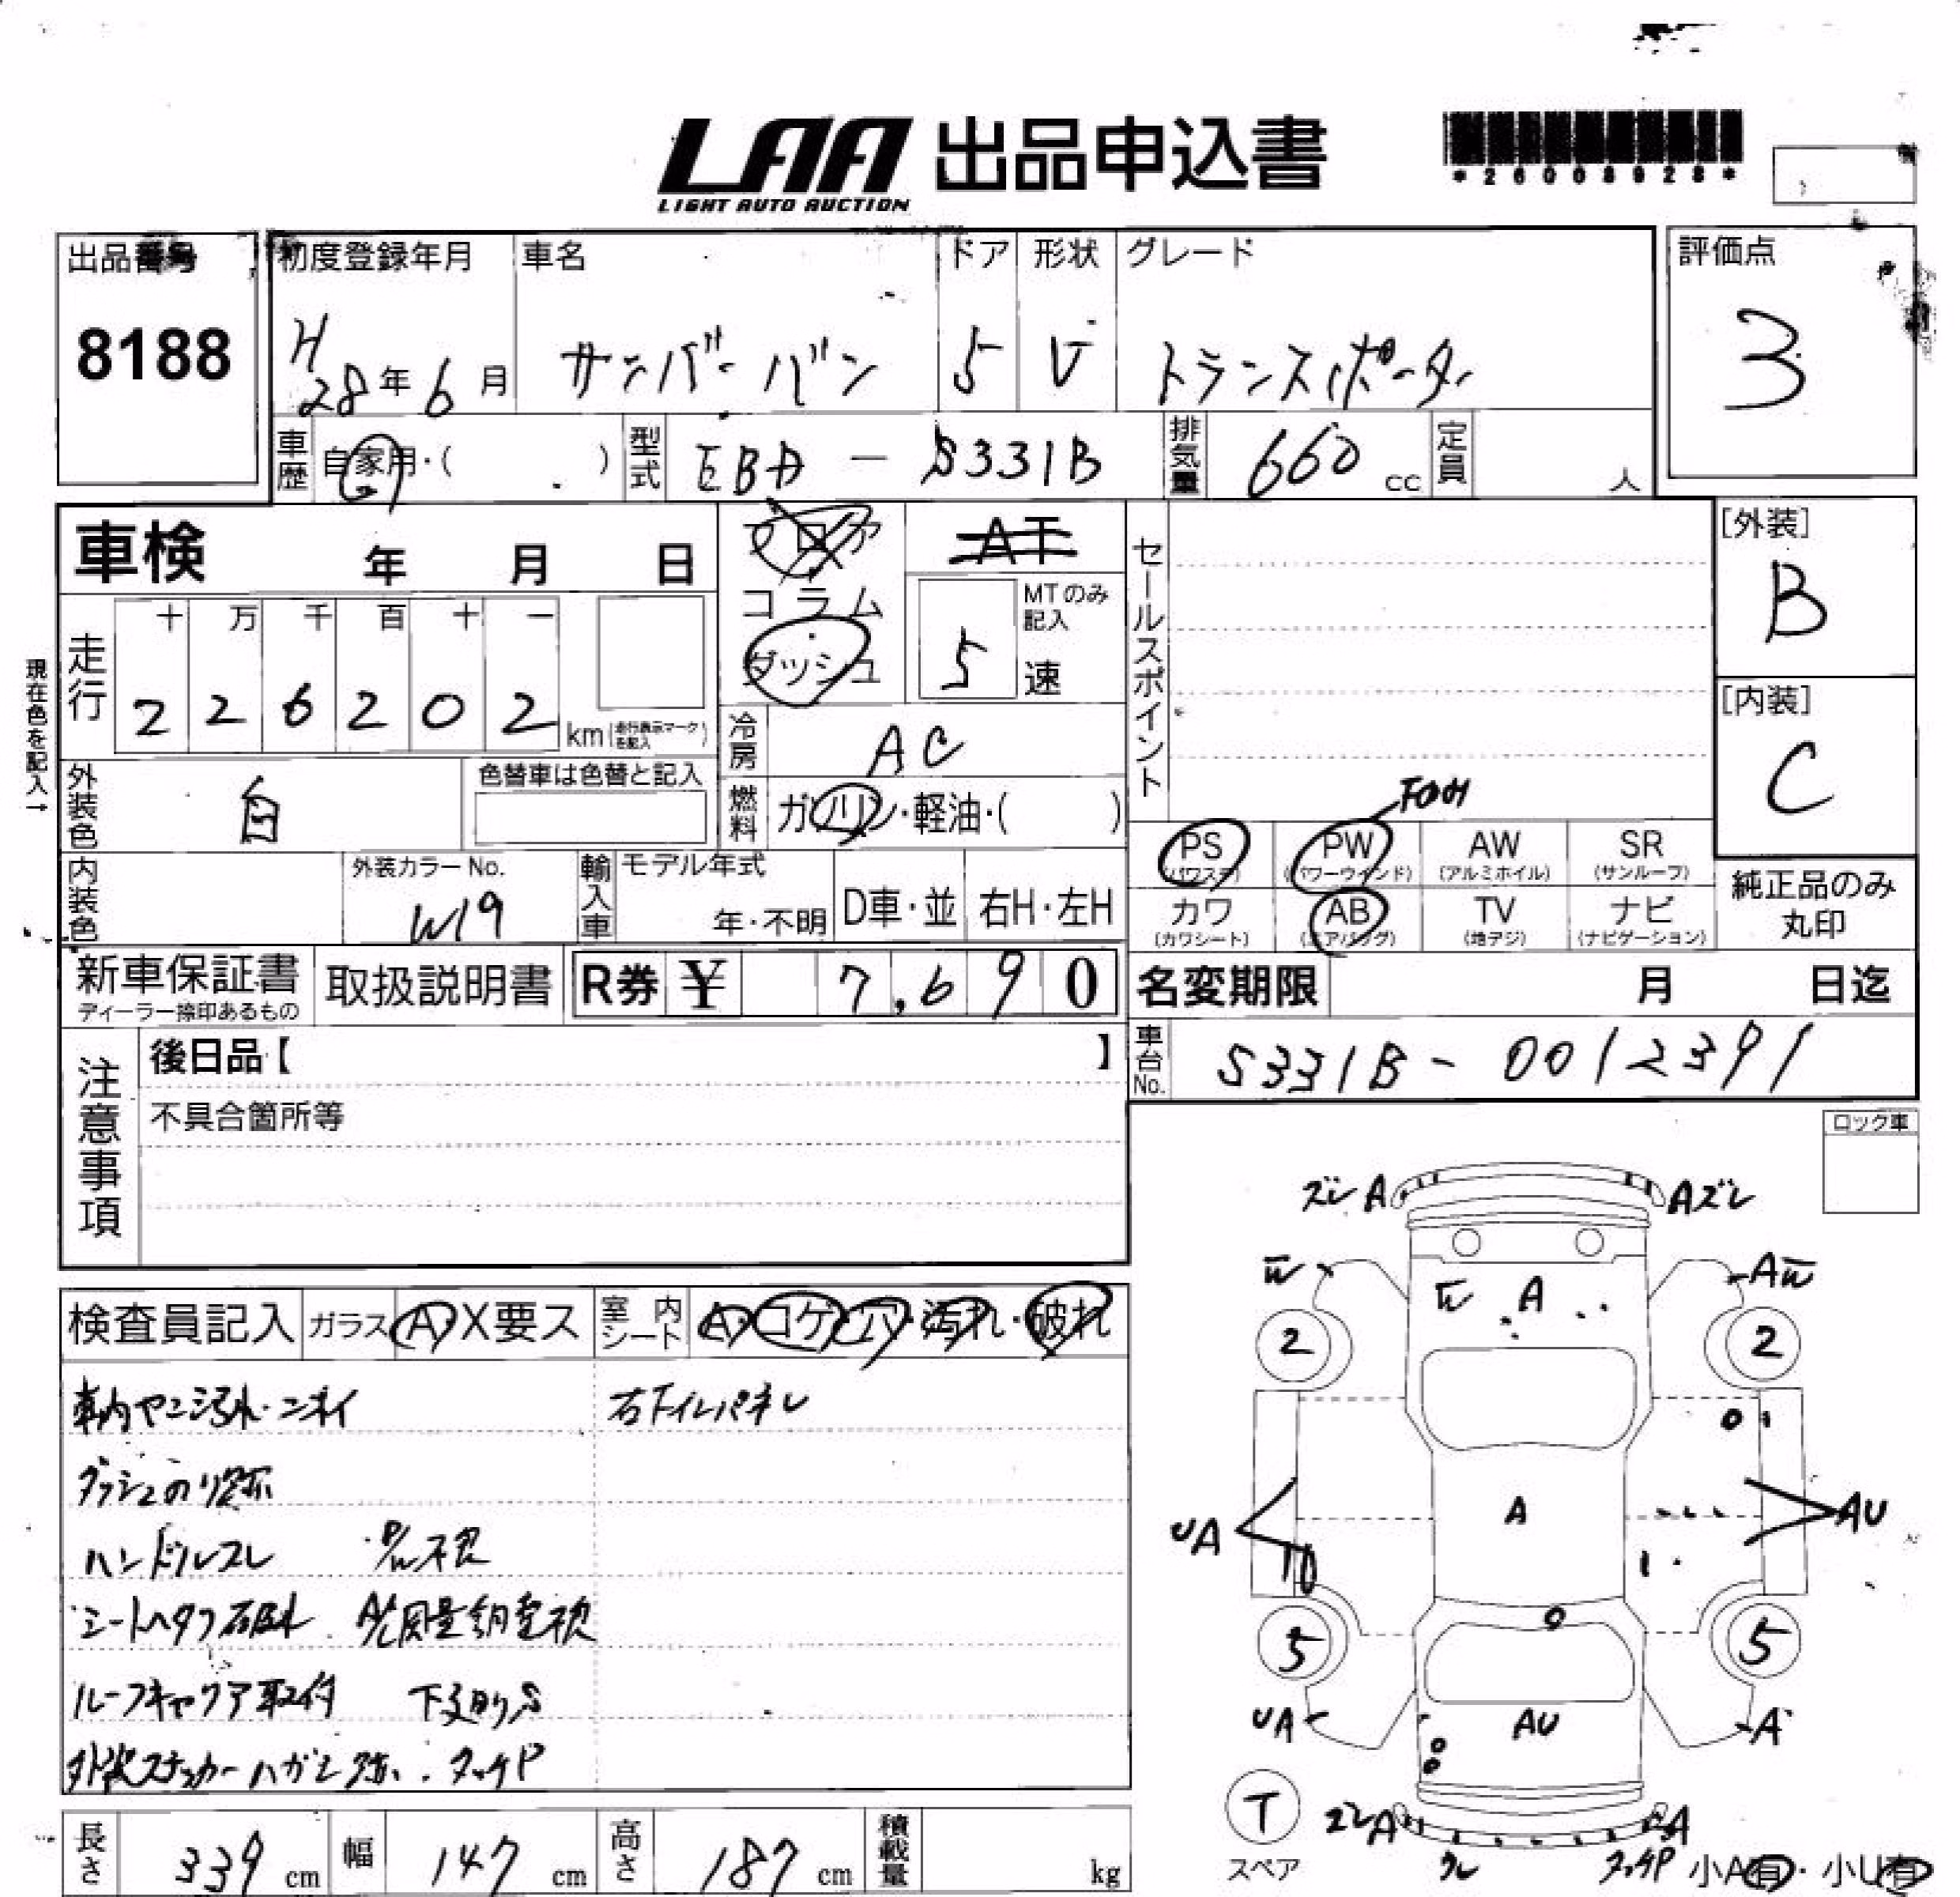 LAA 出品申込書
LIGHT AUTO AUCTION
*26008928*
出品番号
8188
初度登録年月
H28年6月
車名
サンバーバン
ドア
5
形状
V
グレード
トランスポーター
評価点
3
車歴
自家用・( )
型式
EBD - S331B
排気量
660 cc
定員
人
車検 年 月 日
フロア
コラム
ダッシュ
AT
MTのみ記入
5 速
セールスポイント
[外装]
B
[内装]
C
現在色を記入→
走行
十 万 千 百 十 一
2 2 6 2 0 2 km(走行表示マークを記入)
冷房
AC
燃料
ガソリン・軽油・( )
外装色
白
色替車は色替と記入
内装色
外装カラーNo.
W19
輸入車
モデル年式
年・不明
D車・並
右H・左H
PS (パワステ)
PW (パワーウインド)
AW (アルミホイル)
SR (サンルーフ)
カワ (カワシート)
AB (エアバッグ)
TV (地デジ)
ナビ (ナビゲーション)
純正品のみ丸印
新車保証書
ディーラー捺印あるもの
取扱説明書
R券 ¥ 7,690
名変期限 月 日迄
車台No.
S331B - 0012391
注意事項
後日品【 】
不具合箇所等
ロック車
検査員記入 ガラス A X要ス 室内シート A・コゲ・穴・汚れ・破れ
車内ヤニ汚れ・ニオイ
ダッシュのリ跡
ハンドルスレ
シートハタフ破れ
ルーフキャリア取付 下廻りS
外装ステッカーハガシ跡・タッチP
ズレ A
A ズレ
W
AW
W A
2
2
UA
A
AU
5
5
UA
AU
A
T
スペア
ズレA
A
タッチP
小A有・小U有
長さ 339 cm
幅 147 cm
高さ 187 cm
積載量 kg